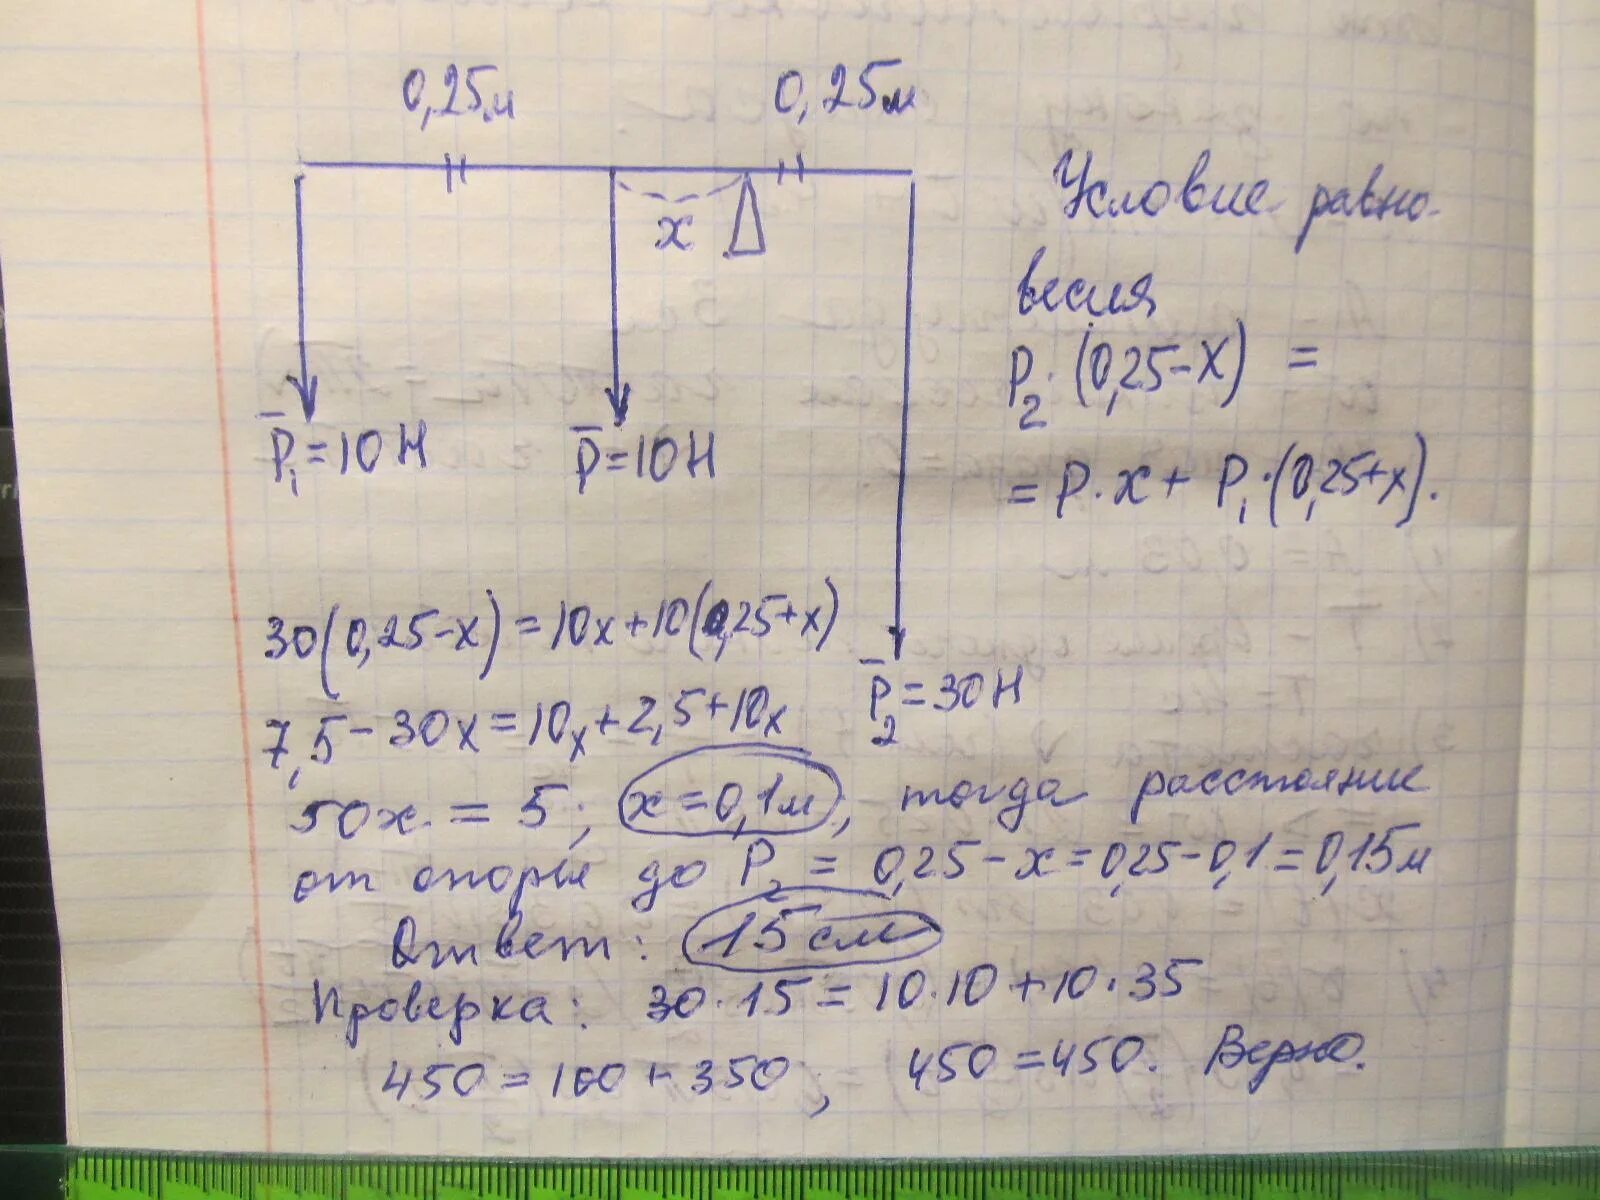 0,25м 0,25м
x
P̅₁=10Н
P̅=10Н
P̅₂=30Н
Условие равно-
весия
P₂·(0,25-x) =
= P·x+ P₁·(0,25+x).
30(0,25-x)=10x+10(0,25+x)
7,5-30x=10x+2,5+10x
50x = 5; x=0,1м, тогда расстояние
от опоры до P₂ = 0,25-x=0,25-0,1=0,15м
Ответ: 15см
Проверка: 30·15=10·10+10·35
450=100+350; 450=450. Верно.